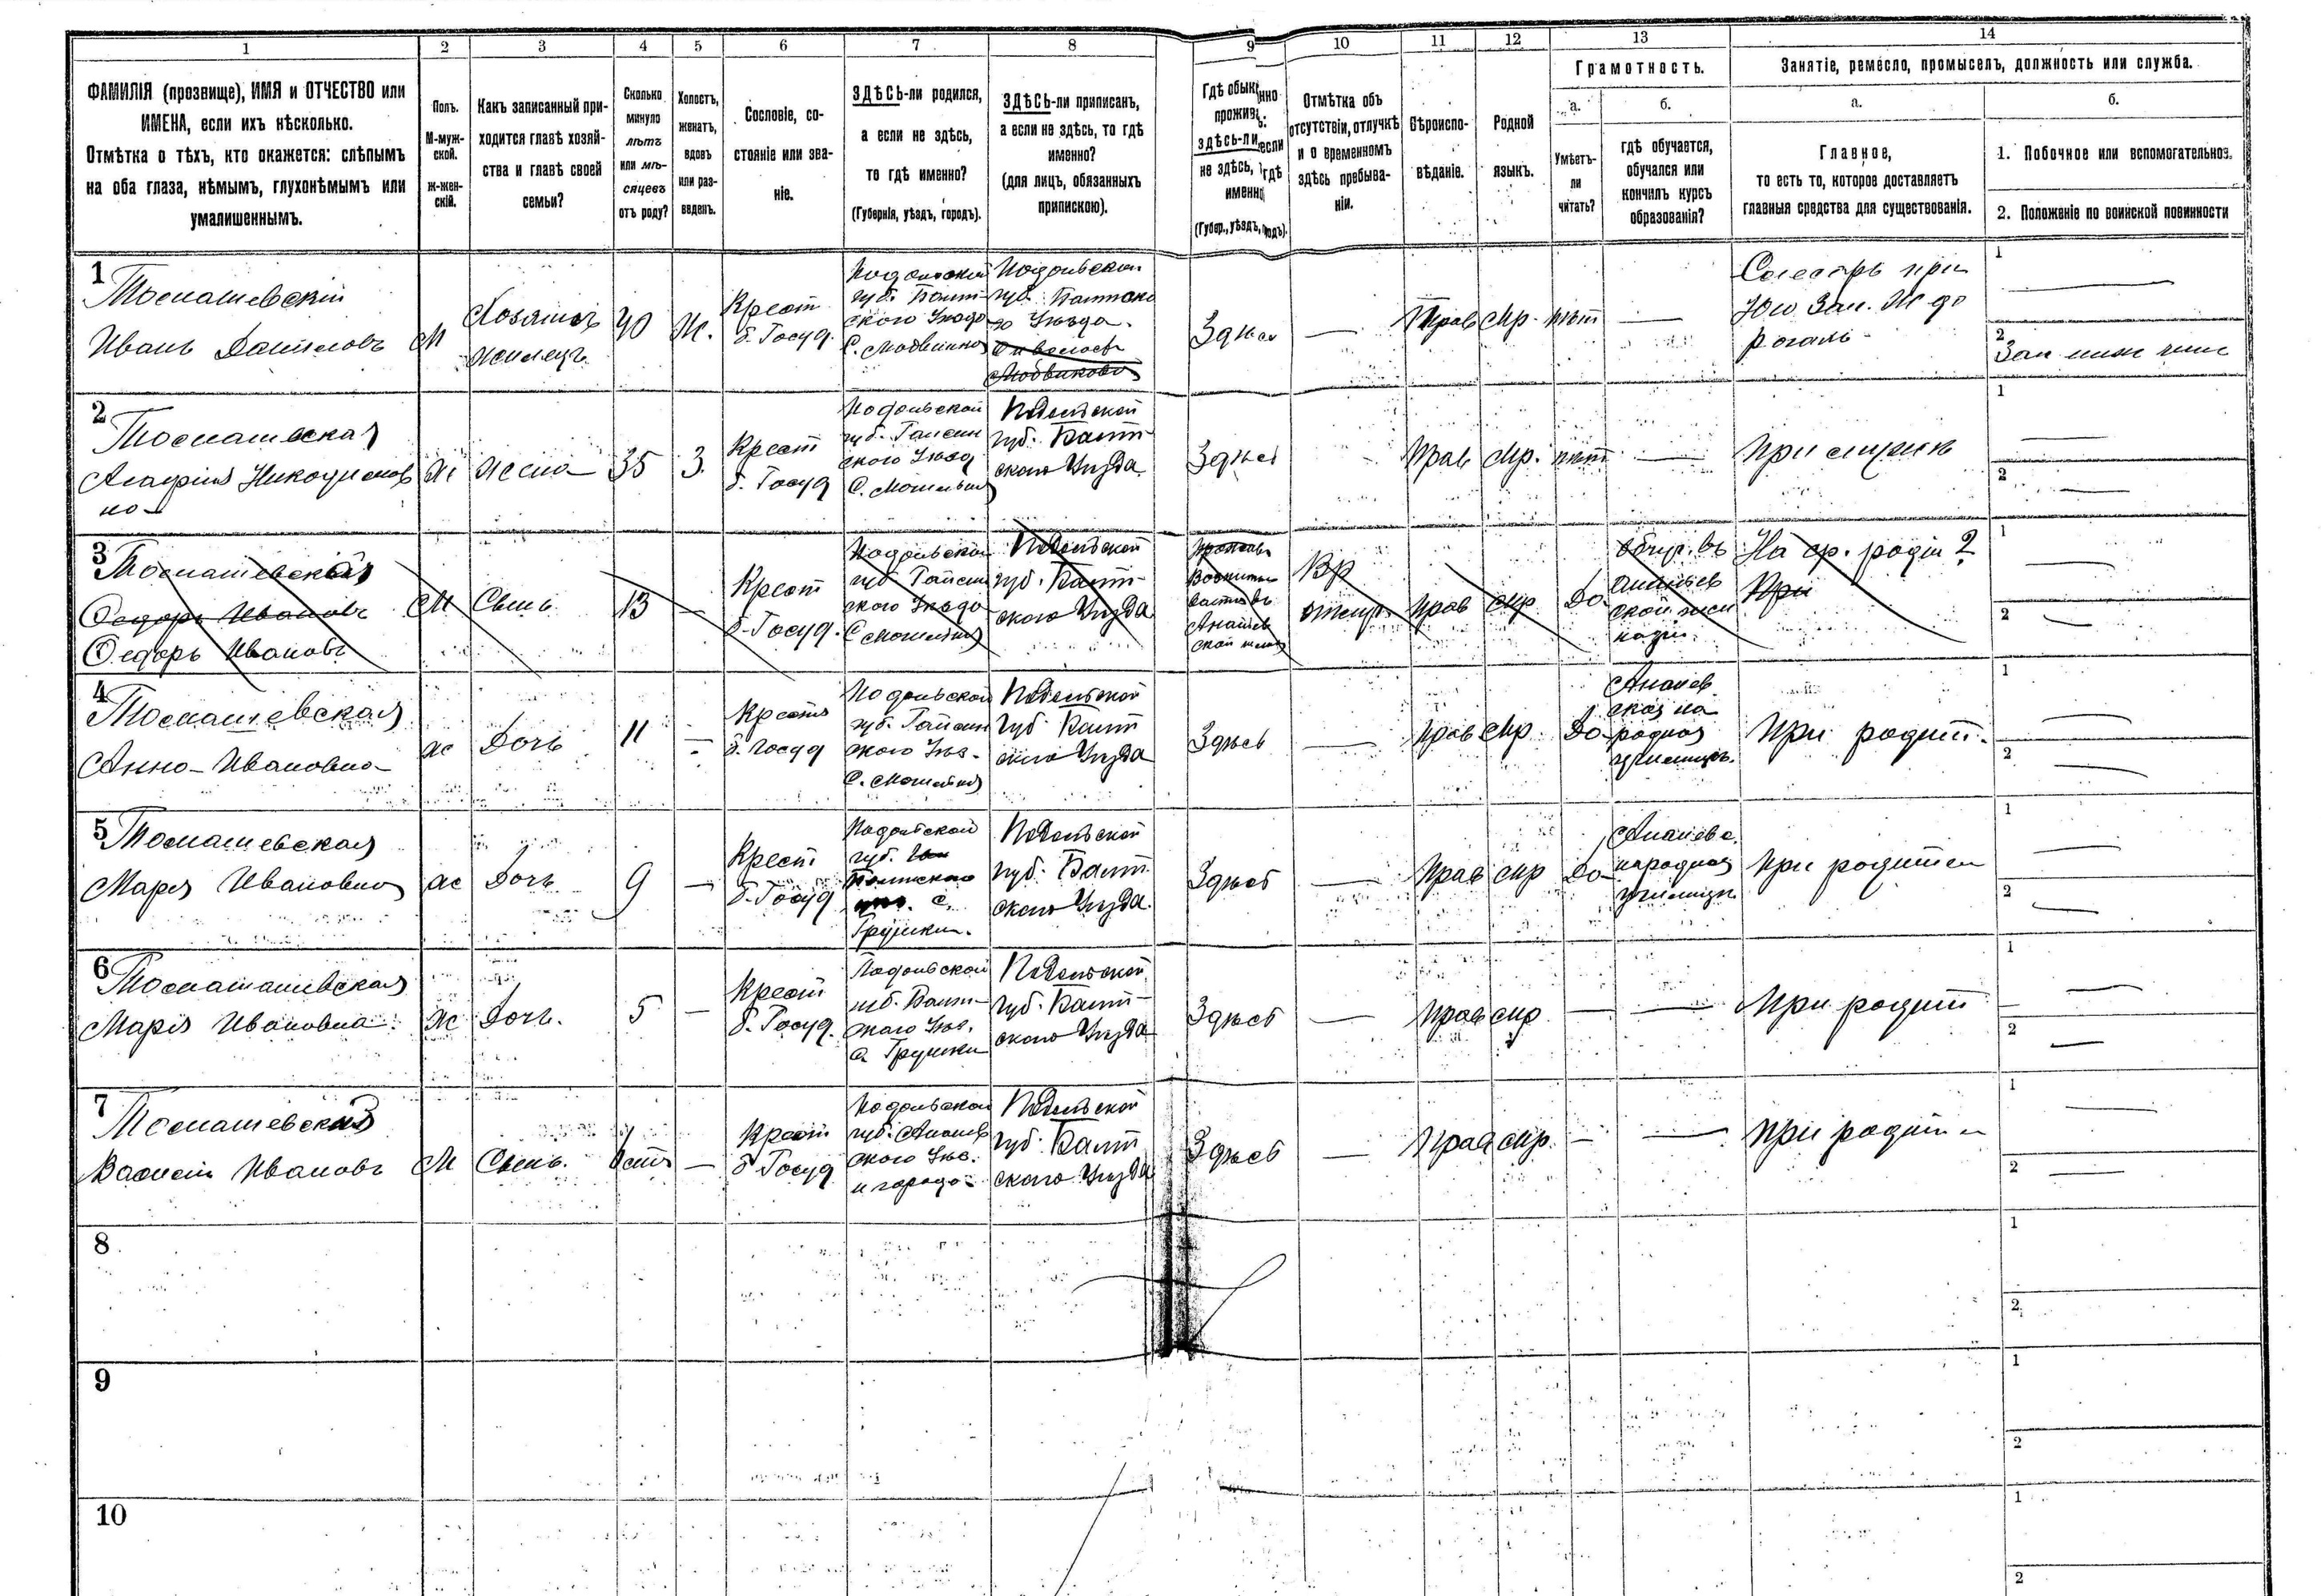 1 2 3 4 5 6 7 8 9 10 11 12 13 14
ФАМИЛІЯ (прозвище), ИМЯ и ОТЧЕСТВО или
ИМЕНА, если ихъ нѣсколько.
Отмѣтка о тѣхъ, кто окажется: слѣпымъ
на оба глаза, нѣмымъ, глухонѣмымъ или
умалишеннымъ.
Полъ.
М-муж-
ской.
Ж-жен-
скій.
Какъ записанный при-
ходится главѣ хозяй-
ства и главѣ своей
семьи?
Сколько
минуло
лѣтъ
или мѣ-
сяцевъ
отъ роду?
Холостъ,
женатъ,
вдовъ
или раз-
веденъ.
Сословіе, со-
стояніе или зва-
ніе.
ЗДѢСЬ-ли родился,
а если не здѣсь,
то гдѣ именно?
(Губернія, уѣздъ, городъ).
ЗДѢСЬ-ли приписанъ,
а если не здѣсь, то гдѣ
именно?
(для лицъ, обязанныхъ
припискою).
Гдѣ обыкновенно
проживаетъ:
здѣсь-ли, если
не здѣсь, гдѣ
именно
(Губер., уѣздъ, городъ).
Отмѣтка объ
отсутствіи, отлучкѣ
и о временномъ
здѣсь пребыва-
ніи.
Вѣроиспо-
вѣданіе.
Родной
языкъ.
Грамотность.
а.
Умѣетъ-
ли
читать?
б.
гдѣ обучается,
обучался или
кончилъ курсъ
образованія?
Занятіе, ремесло, промыселъ, должность или служба.
а.
Главное,
то есть то, которое доставляетъ
главныя средства для существованія.
б.
1. Побочное или вспомогательное.
2. Положеніе по воинской повинности
1
Томашевскій
Иванъ Даниловъ
М
Хозяинъ
40
Ж.
Крест
б. Госуд.
Подольской
губ. Балт-
ского Уезда
Подольской
губ. Балтско
го Уезда
Здѣсь
—
Прав
мр.
нѣт
—
при
Юго Зап. Ж. до
рогахъ
1
2
Зап ниж чин
2
Томашевская
Агафія Никодимов
на
Ж
Жена
35
З.
Крест
б. Госуд
Подольской
губ. Гайсин
ского Уезд
Подольской
губ. Балт-
ского Уѣзда
Здѣсь
Прав
мр.
нѣт
—
При мужѣ
1
2
3
Томашевскій
Федоръ Ивановъ
Федоръ Ивановъ
М
Сынъ
13
—
Крест
б. Госуд.
Подольской
губ Гайсин
ского Уезда
Подольской
губ. Балт-
ского Уѣзда
Вр
отлуч.
Прав
мр
Да
обуч. въ
Ананьев
ской гим
назіи
На ср. родит ?
При
1
2
4
Томашевская
Анна Ивановна
Ж
Дочь
11
—
Крест
б. Госуд
Подольской
губ. Гайсин
ского Уез.
Подольской
Губ. Балт
ского Уѣзда
Здѣсь
—
Прав
мр
Да
Ананьев
ская на
родная
училище.
При родит.
1
2
5
Томашевская
Марія Ивановна
Ж
Дочь
9
—
Крест
б. Госуд
Подольской
губ.
Балтского
с.
Грушки.
Подольской
губ. Балт
ского Уѣзда.
Здѣсь
—
Прав
мр
Да
Ананьевс.
народная
училище
При родител
1
2
6
Томаташевская
Марія Ивановна
Ж
Дочь.
5
—
Крест
б. Госуд.
Подольской
губ. Балт-
ского Уез.
с. Грушки
Подольской
губ. Балт-
ского Уѣзда
Здѣсь
—
Прав
мр
—
—
При родит
1
2
7
Томашевскій
Василій Ивановъ
М
Сынъ.
—
Крест
б Госуд
Подольской
губ. Ананьев
ского Уез.
и города
Подольской
губ. Балт
ского Уѣзда
Здѣсь
—
Прав
мр.
—
—
При родит
1
2
8
1
2
9
1
2
10
1
2